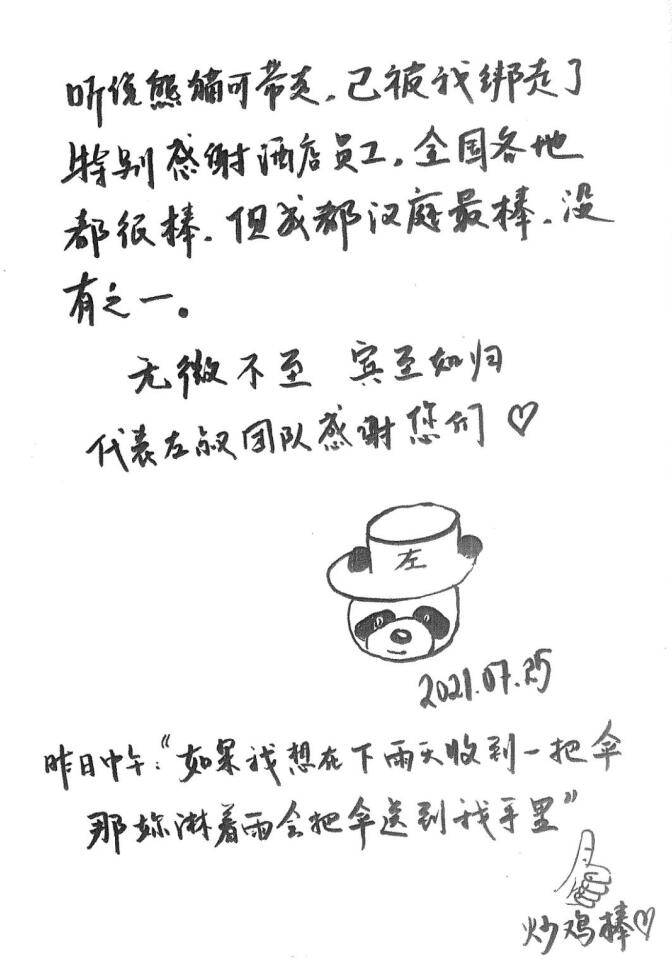 听说熊猫可带走，已被我绑走了
特别感谢酒店员工，全国各地
都很棒，但成都汉庭最棒，没
有之一。
无微不至 宾至如归
代表左叔团队感谢您们♡
左
2021.07.25
昨日中午：“如果我想在下雨天收到一把伞
那妳淋着雨会把伞送到我手里”
炒鸡棒♡